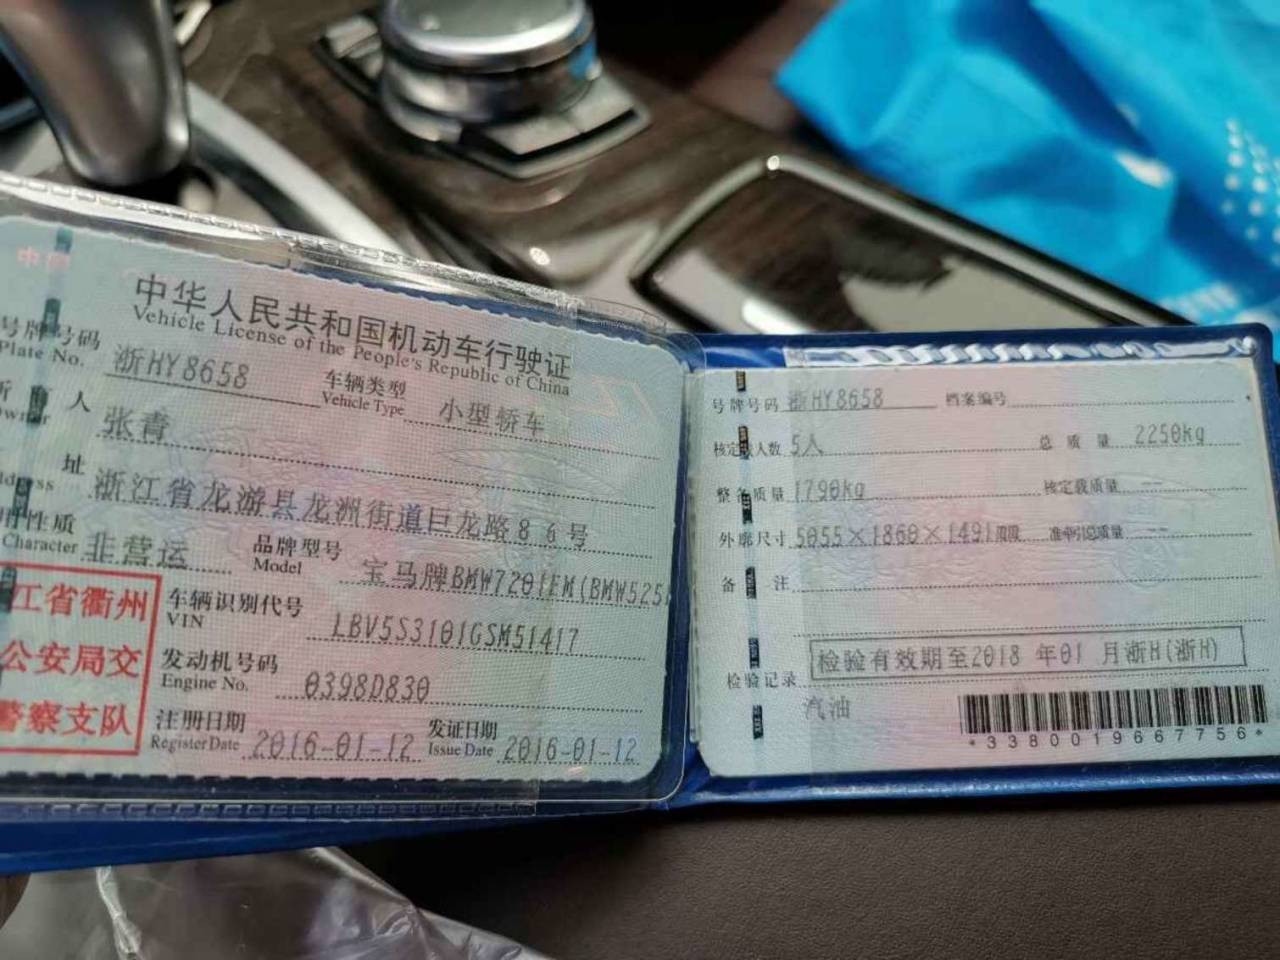 中华人民共和国机动车行驶证
Vehicle License of the People's Republic of China
号牌号码 浙HY8658 车辆类型 小型轿车
Plate No. Vehicle Type
人 张青
址 浙江省龙游县龙洲街道巨龙路86号
性质 非营运 品牌型号 宝马牌BMW7201EM(BMW525
Character Model
江省衢州
公安局交
警察支队
车辆识别代号 LBV5S3101GSM51417
VIN
发动机号码 0398D830
Engine No.
注册日期 2016-01-12 发证日期 2016-01-12
Register Date Issue Date
号牌号码 浙HY8658 档案编号
核定载人数 5人 总质量 2250kg
整备质量 1790kg 核定载质量 --
外廓尺寸 5055×1860×1491mm 准牵引总质量 --
备注
检验有效期至2018年01月浙H(浙H)
检验记录
汽油
*3380019667756*